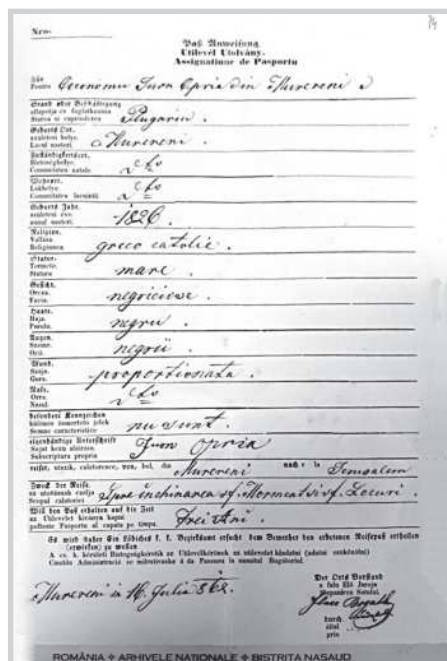 Nro.
Paß Anweisung
Utilevél Utolvány.
Assignatiune de Pasportu
Für
Pentru Economu Iuon Opria din Murereni
Stand oder Beschäftigung
állapotja és foglatkozása
Starea si cuprinderea Plugariu.
Geburts Ort.
születési helye.
Locul nasteri Murereni
Zuständigkeitsort.
Illetőséghelye.
Communitatea natale. dto
Wohnort.
Lakhelye.
Communitatea locuintei dto
Geburts Jahr.
születési éve.
anul nasteri. 1826
Religion.
Vallása
Religiunea greco catolic.
Statur.
Termete.
Statura mare
Gesicht.
Orcza.
Facia. negriciose.
Haare.
Haja.
Perulu. negru.
Augen.
Szeme.
Ochi. negrii
Mund.
Szája.
Gura. proportionata.
Nase.
Orra.
Nasul. dto
besondere Kennzeichen
különös ismertető jelek
Semne caracteristice nu sunt.
eigenhändige Unterschrift
Saját kezü aláirása.
Subscriptura propria Iuon Opria
reiset, utazik, caletoresce, von, ból, din Murereni nach e la Ierusalem
Zweck der Reise.
az utazásnak czélja
Scopul calatoriei Spre inchinarea sf. Mormant si sf. Locuri.
Will den Paß erhalten auf die Zeit
az Utilevelet kivánja kapni
pofteste Pasportu al capata pe timpu. trei Ani.
Es wird daher Ein Löbliches k. k. Bezirksamt ersucht dem Bewerber den erbetenen Reisepaß ertheilen
(erwirken) zu wollen
A cs. k. kerületi Hatogságkéretik az Utilevélkérönek az utilevelet kiadatni (adatni eszközölni)
Murereni in 16. Julia 868.
Der Orts Vorstand
a falu Elő Jároja
durch
által
prin
ROMÂNIA ✦ ARHIVELE NAȚIONALE ✦ BISTRIȚA NĂSĂUD